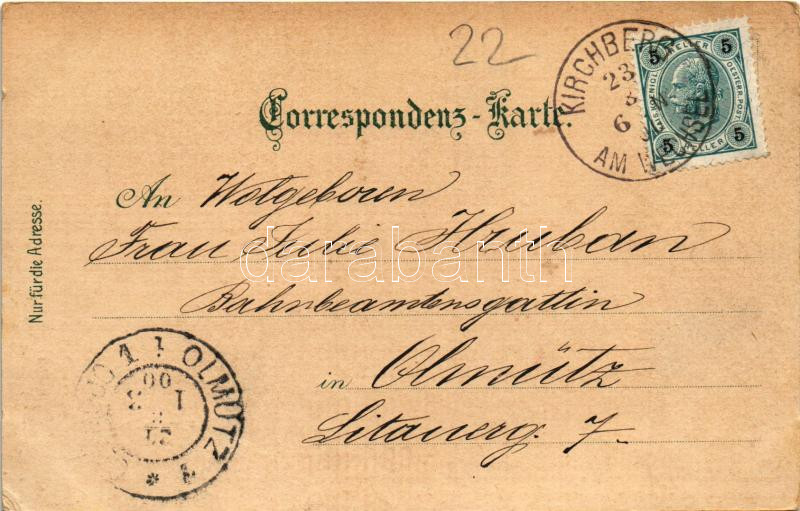 22
KIRCHBERG AM WECHSEL
23
6
5 HELLER 5
KAIS. KÖNIGL. OESTERR. POST
5 HELLER 5
Correspondenz-Karte.
An Wolgeboren
Frau Julie Hruban
darabanth
Bahnbeamtensgattin
in Olmütz
Litauerg. 7.
Nur für die Adresse.
OLMÜTZ 1
00